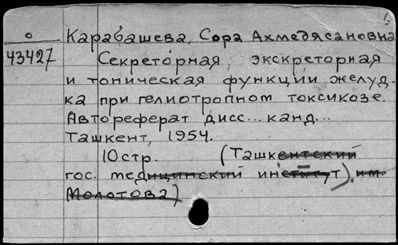 1.
о Карабашева, Сора Ахмедясановна
43427 Секреторная, экскреторная
и тоническая функции желуд.
ка при гелиотропном токсикозе.
Автореферат дисс... канд...
Ташкент, 1954.
10стр. (Ташкентский
гос. медицинский институт). им.
Молотова)